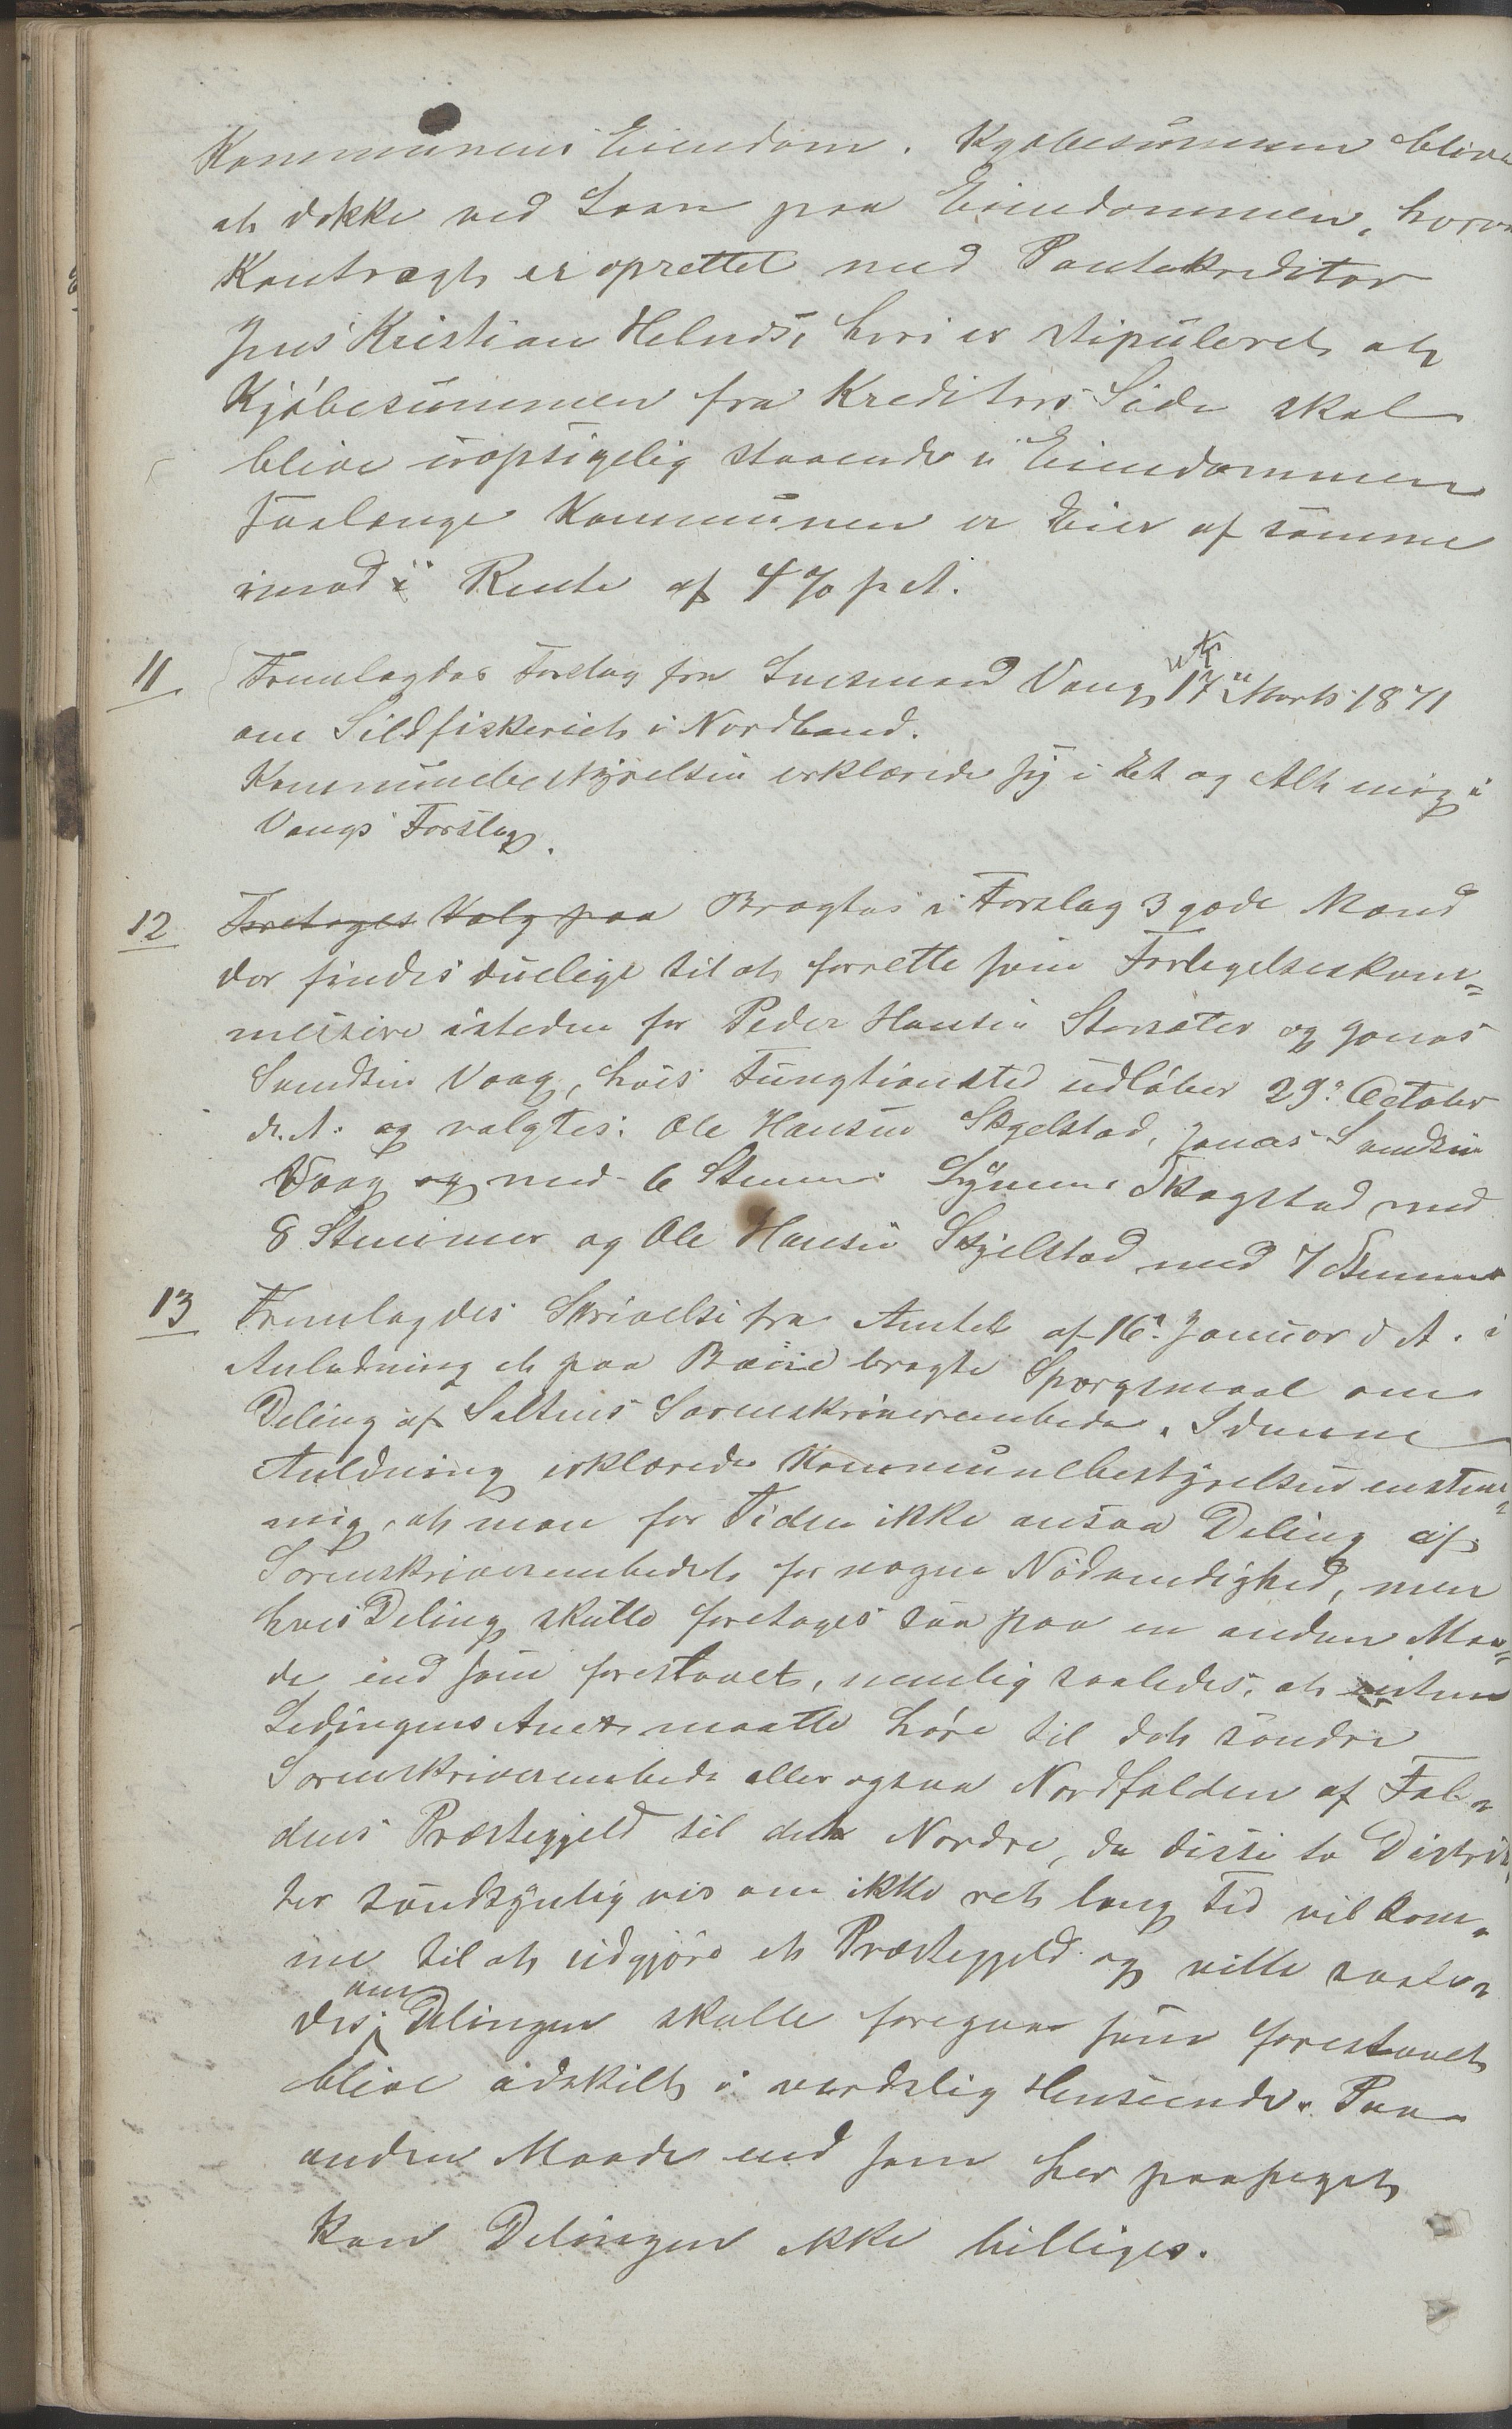 Kommunens Eiendom. Kjøbesummen bliver
at dække ved Laan paa Eiendommen, hvorom
Kontragt er oprettet med Pantekreditor
Jens Kristian  hvori er stipuleret at
Kjøbesummen fra Kreditors Side skal
blive uopsigelig staaende i Eiendommen
saalænge Kommunen er Eier af samme
imod i Rente af 4 % p. A.
11 Fremlagdes Forslag fra Lensmand Vang 17" Marts 1871
om Sildfiskeriet i Nordland.
Kommunebestyrelsen erklærede sig i Et og Alt enig i
Vangs Forslag.
12 Foretoges Valg paa Bragtes i Forslag 3 gode Mænd
der findes duelige til at forrette som Forligelseskom=
missære isteden for Peder Hansen Storsæter og Jonas
Svendsen Vaag, hvis Fungtionsted udløber 29de October
d. A. og valgtes: Ole Hansen Skjelstad, Jonas Svendsen
Vaag og med 6 Stemmer  Skagstad med
8 Stemmer og Ole Hansen Skjelstad med 7 Stemmer
13 Fremlagdes Skrivelse fra Amtet af 16de Januar d. A. i
Anledning et paa Bane bragte Spørgsmaal om
Deling af Saltens Sorenskriverembede. I denne
Anledning erklærede Kommunebestyrelsen enstem=
mig, at man for Tiden ikke ansaa Deling af
Sorenskriverembedet for nogen Nødvendighed, men
hvis Deling skulle foretages saa paa en anden Maa=
de end som foreslaaet, nemlig saaledes, at enten
Ledingens Anex maatte høre til det søndre
Sorenskriverembede eller ogsaa Nordfolden af Fol=
dens Præstegjeld til det Nordre, da disse to Distrik=
ter sandsynligvis om ikke ret lang Tid vil kom=
me til at udgjøre et Præstegjeld og ville saale=
des, om Delingen skulle foregaa som foreslaaet
blive adskilt i verdslig Henseende. Paa
anden Maade end som her paapeget
kan Delingen ikke billiges.